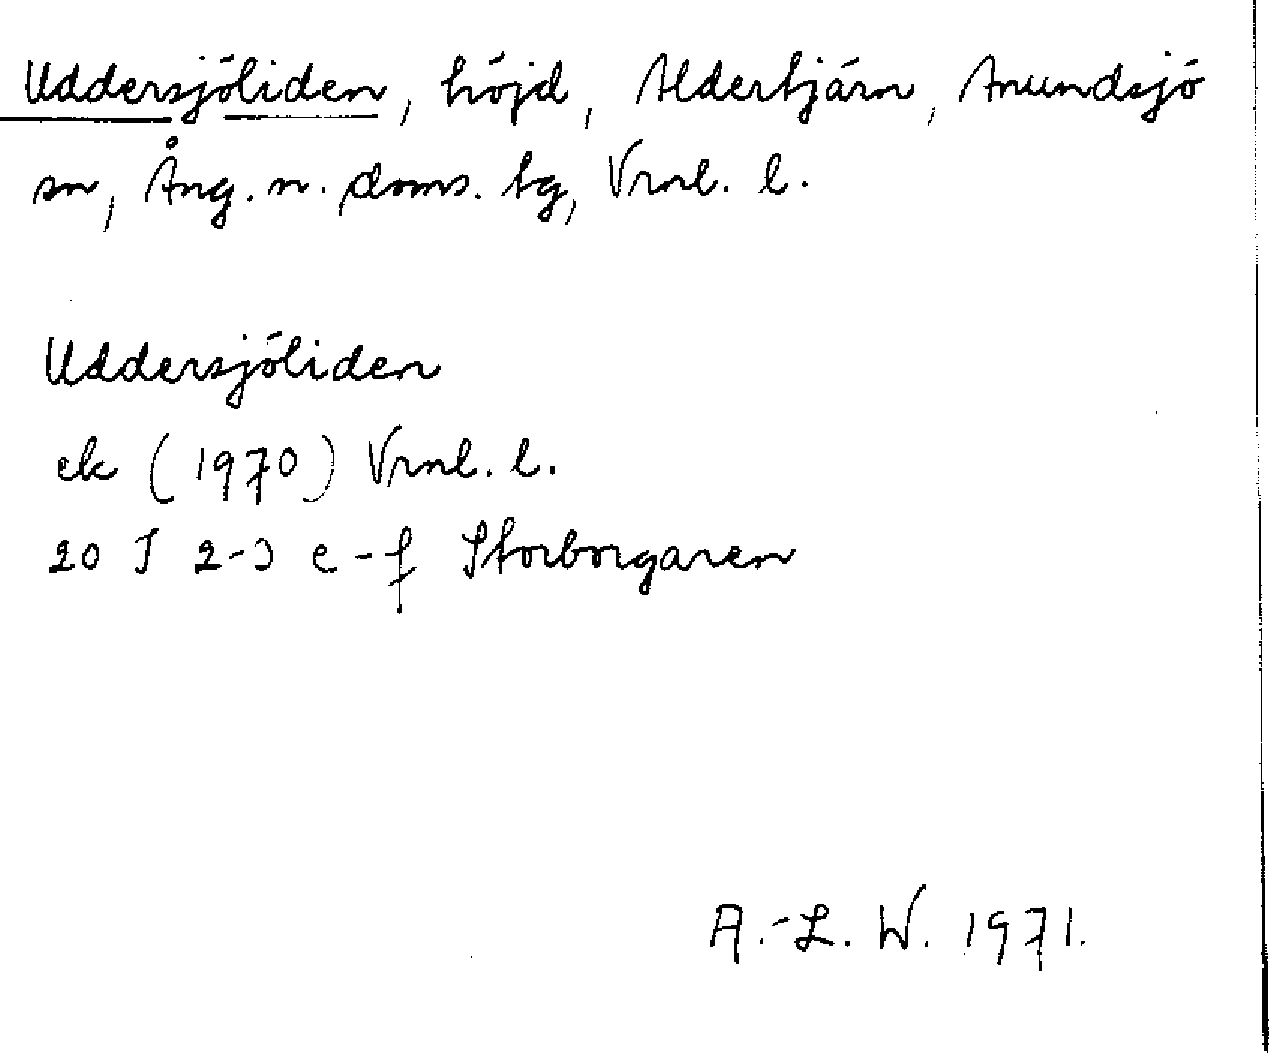 Uddersjöliden, höjd, Aldertjärn, Anundsjö
sn, Ång. n. doms. tg, Vrnl. l.
Uddersjöliden
ek (1970) Vrnl. l.
20 J 2-3 e-f Storborgaren
A.-L. W. 1971.